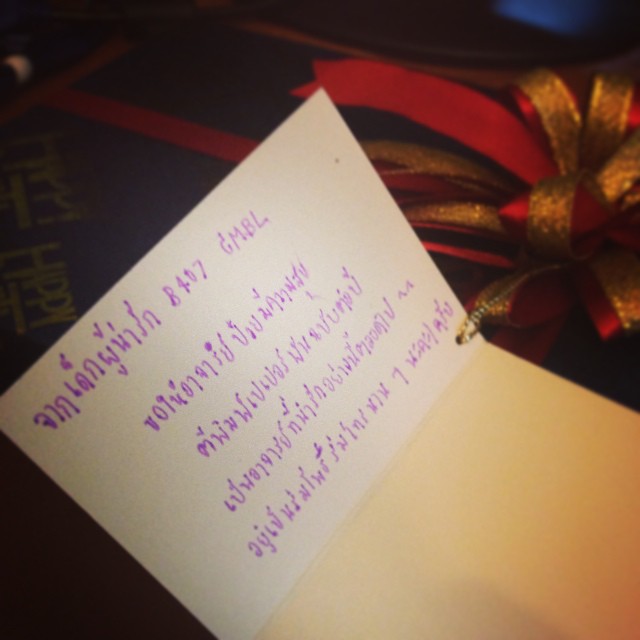 จากเด็กผู้น่ารัก 8407 GMBL
ขอให้อาจารย์ปีใหม่มีความสุข
ตีพิมพ์เปเปอร์เป็นฉบับๆทุกปี
เป็นอาจารย์ที่น่ารักอย่างนี้ตลอดไป ~~
อยู่เป็นร่มโพธิ์ร่มไทรนาน ๆ นะคะ/ครับ